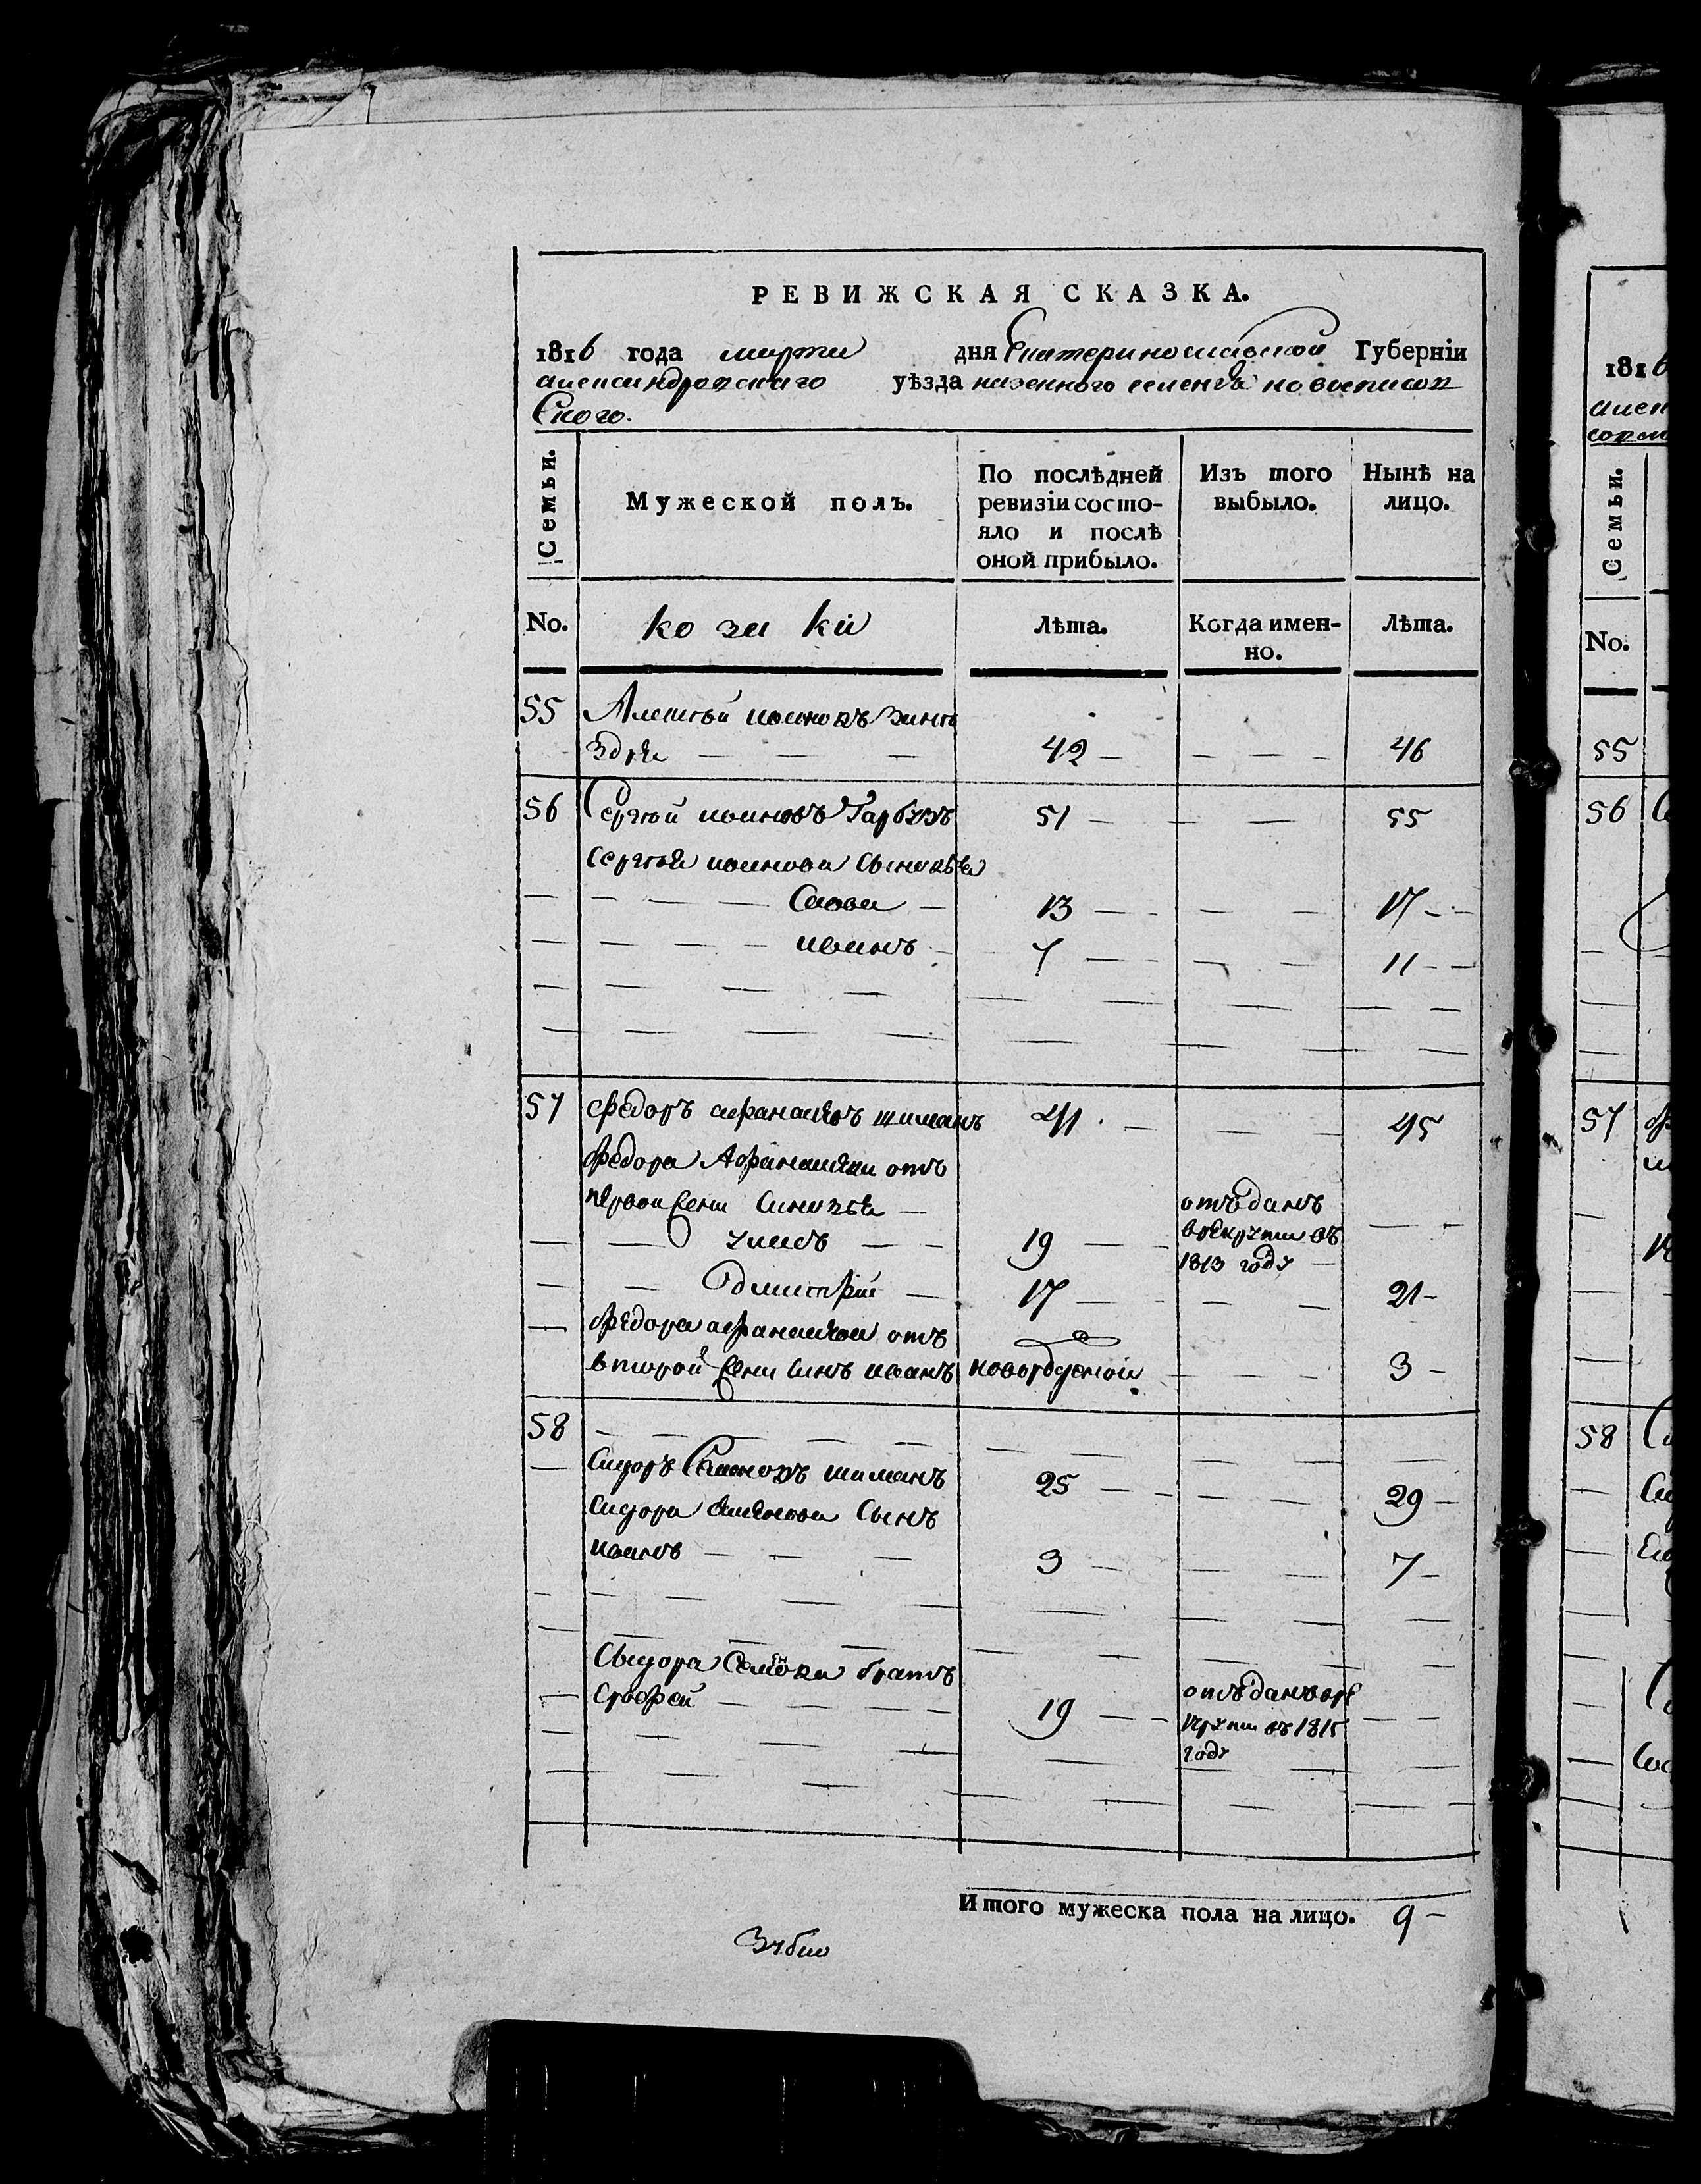 РЕВИЖСКАЯ СКАЗКА.
1816 года марта дня Екатеринославской Губерніи
александровскаго уѣзда казенного селенія новоспасов
Ского.
Семьи.
Мужеской полъ.
По послѣдней ревизіи состо-
яло и послѣ
оной прибыло.
Изъ того
выбыло.
Нынѣ на
лицо.
No.
ко за ки
Лѣта.
Когда имен-
но.
Лѣта.
55 Алексѣй ивановъ
42 46
56 Сергѣй ивановъ Гарбузъ 51 55
Сергѣя иванова Сыновья
Савва 13 17
иванъ 7 11
57 Федоръ афанасьевъ шиманъ 41 45
Федора Афанасьева отъ
первой жени Синовья
19 отъданъ
врекрути въ
1813 году
дмитрій 17 21
Федора афанасьева отъ
второй жени Синъ иванъ новорожденой 3
58
Сидоръ Семеновъ шиманъ 25 29
Сидора Семенова Сынъ
иванъ 3 7
Сыдора Семенова братъ
Ерофей 19 отъданъ вре
крути въ 1815
году
Итого мужеска пола на лицо. 9
1816
No.
55
56
57
58